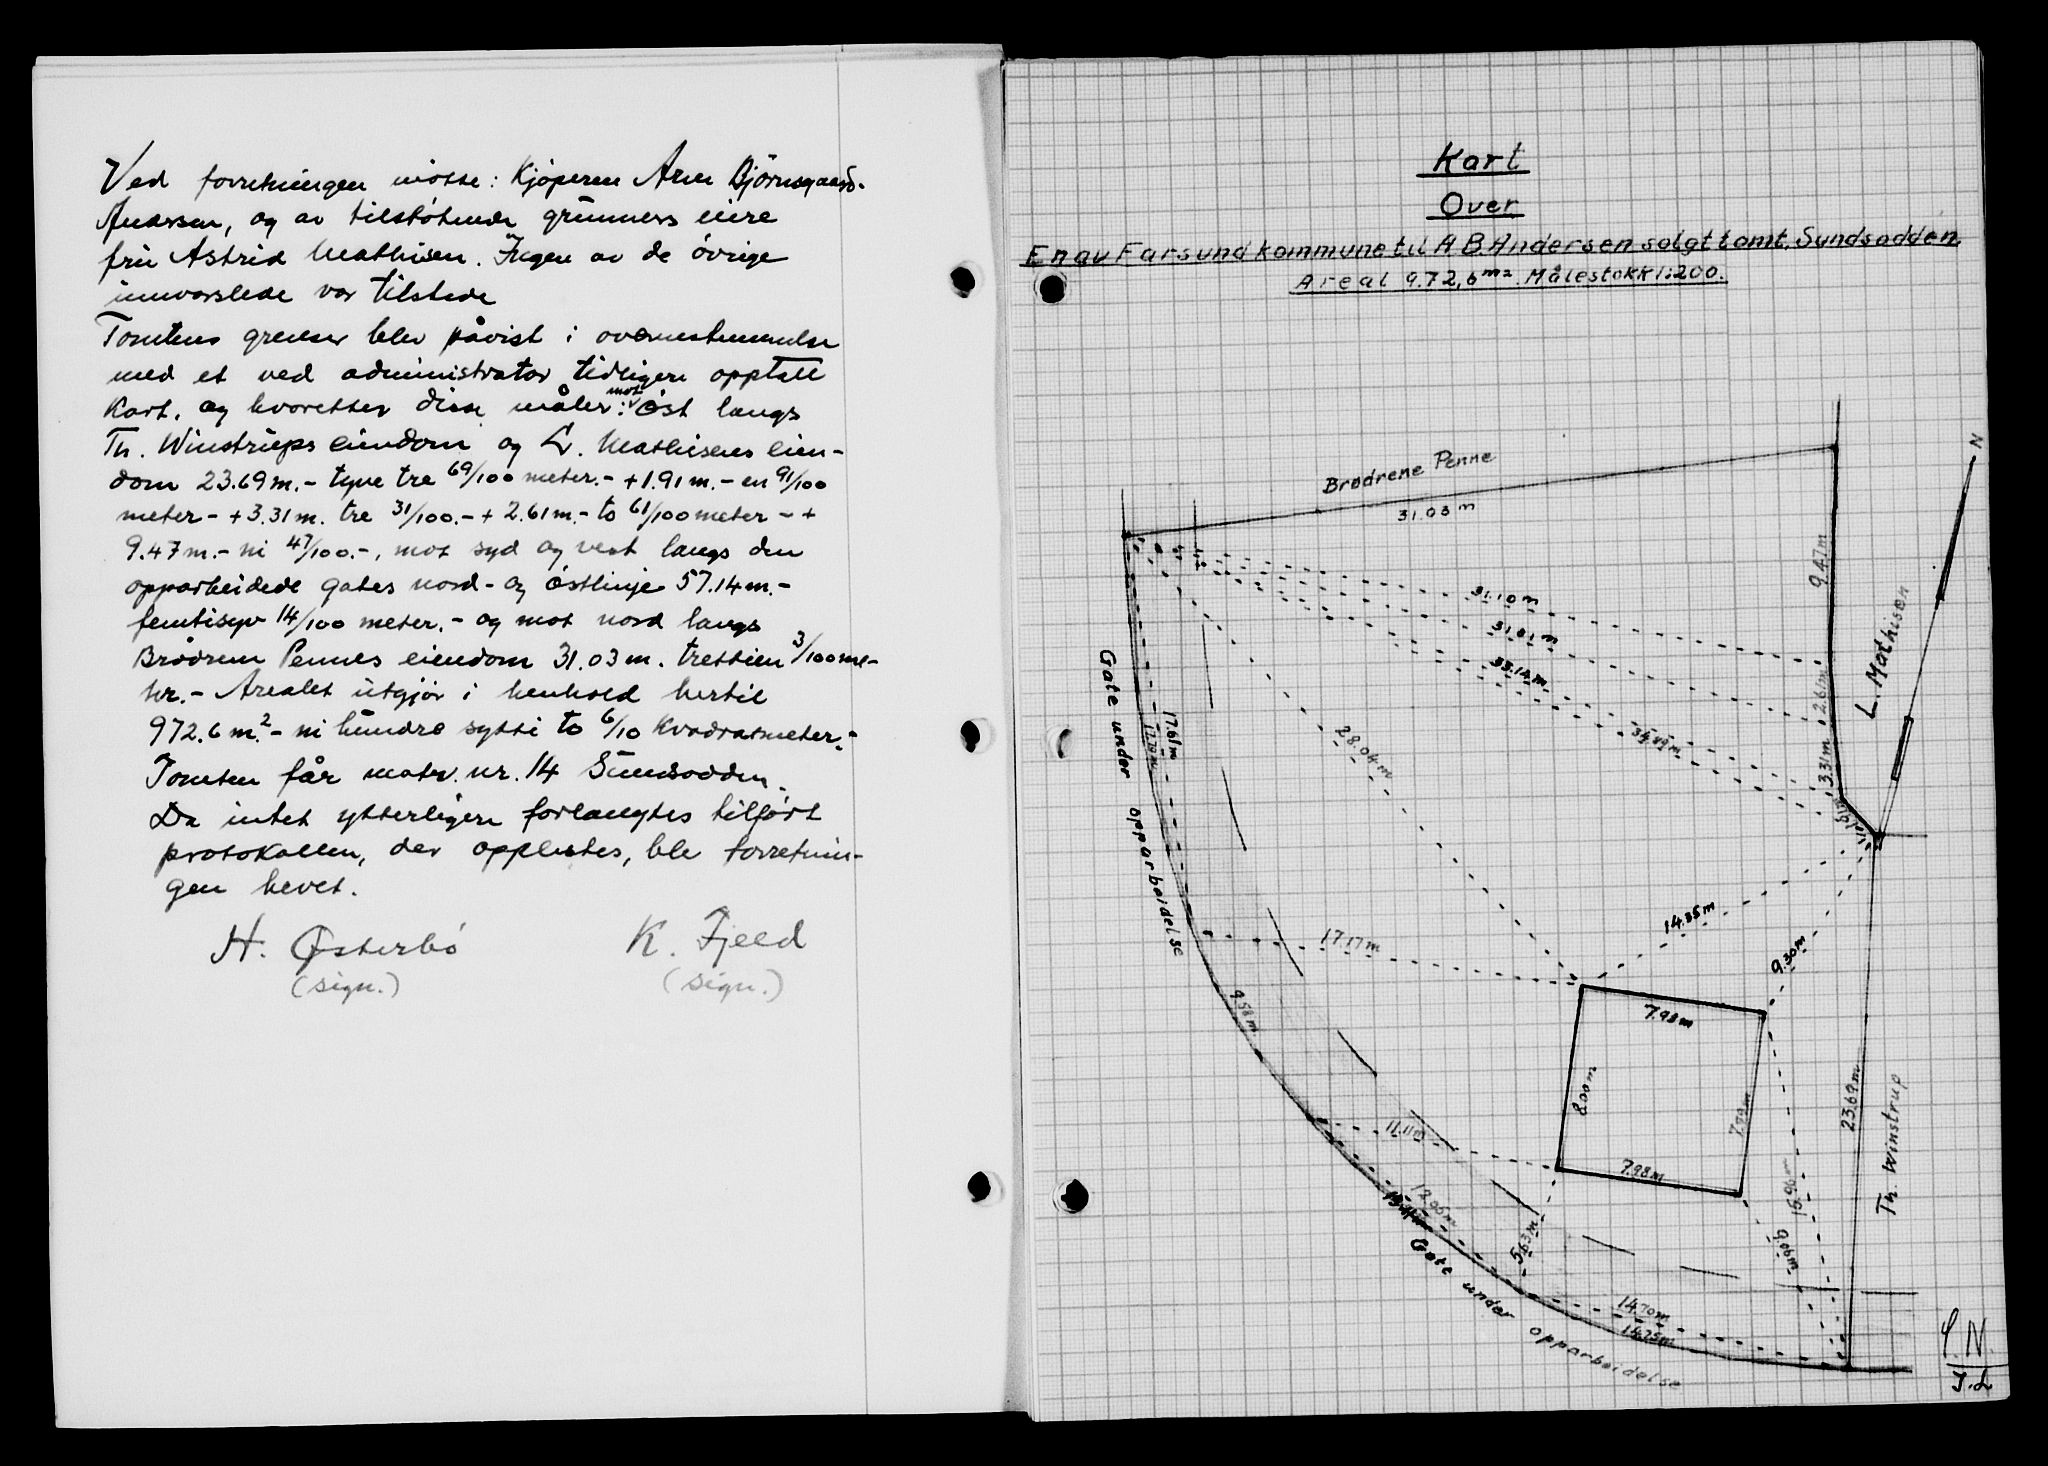 Ved forretningen møtte: Kjøperen Arne Björnsgaard-
Andersen, og av tilstøtende grunners eiere
fru Astrid Mathisen. Ingen av de övrige
innvarslede var tilstede
Tomtens grenser blev påvist i overenstemmelse
med et ved administrator tidligere opptatt
Kart. og hvoretter disse måler: mot öst langs
Th. Winstrups eiendom og L. Mathisens eien-
dom 23.69 m.- tyve tre 69/100 meter.- + 1.91 m.- en 91/100
meter - + 3.31 m. tre 31/100.- + 2.61 m.- to 61/100 meter - +
9.47 m.- ni 47/100.-, mot syd og vest langs den
opparbeidede gates nord- og östlinje 57.14 m.-
femtisyv 14/100 meter.- og mot nord langs
Brödrene Pennes eiendom 31.03 m. trettien 3/100 me-
ter.- Arealet utgjör i henhold hertil
972.6 m².- ni hundre sytti to 6/10 Kvadratmeter.-
Tomten får matr. nr. 14 Sundsodden.
Da intet ytterligere forlangtes tilført
protokollen, der opplestes, ble forretnin-
gen hevet.
H. Østerbö K. Fjeld
(sign.) (sign.)
Kart
Over
En av Farsund kommune til A. B. Andersen solgt tomt. Sundsodden.
Areal 9.72,6 m². Målestokk 1:200.
N
Brødrene Penne
31.03 m
9.47 m
31.10 m
31.81 m
33.14 m
L. Mathisen
2.61 m
Gate under opparbeidelse
17.61 m
28.04 m
3.31 m
1.91 m
14.35 m
17.17 m
9.30 m
9.58 m
7.98 m
8.00 m
7.99 m
23.69 m
Th. Winstrup
11.11 m
7.98 m
12.95 m
15.96 m
5.63 m
Gate under opparbeidelse
14.70 m
14.75 m
J.L